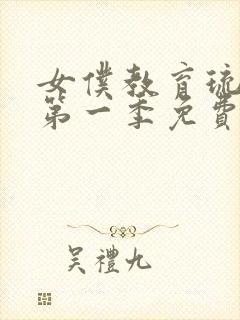 女僕教育琉
第一季免費
吴禮九